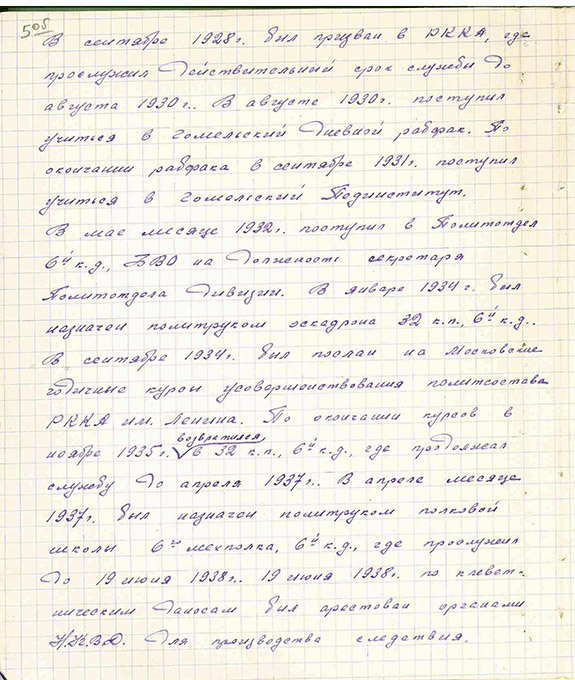 50б
В сентябре 1928г. был призван в РККА, где
прослужил действительный срок службы до
августа 1930г.. В августе 1930г. поступил
учиться в Гомельский дневной рабфак. По
окончании рабфака в сентябре 1931г. поступил
учиться в Гомельский Пединститут.
В мае месяце 1932г. поступил в Политотдел
6й к.д., БВО на должность секретаря
Политотдела дивизии. В январе 1934г. был
назначен политруком эскадрона 32 к.п., 6й к.д..
В сентябре 1934г. был послан на Московские
годичные курсы усовершенствования политсостава
РККА им. Ленина. По окончании курсов в
возвратился
ноябре 1935г. √ в 32 к.п., 6й к.д., где продолжал
службу до апреля 1937г.. В апреле месяце
1937г. был назначен политруком полковой
школы 6го мехполка, 6й к.д., где прослужил
до 19 июня 1938г.. 19 июня 1938г. по клевет-
ническим доносам был арестован органами
Н.К.В.Д. для производства следствия.